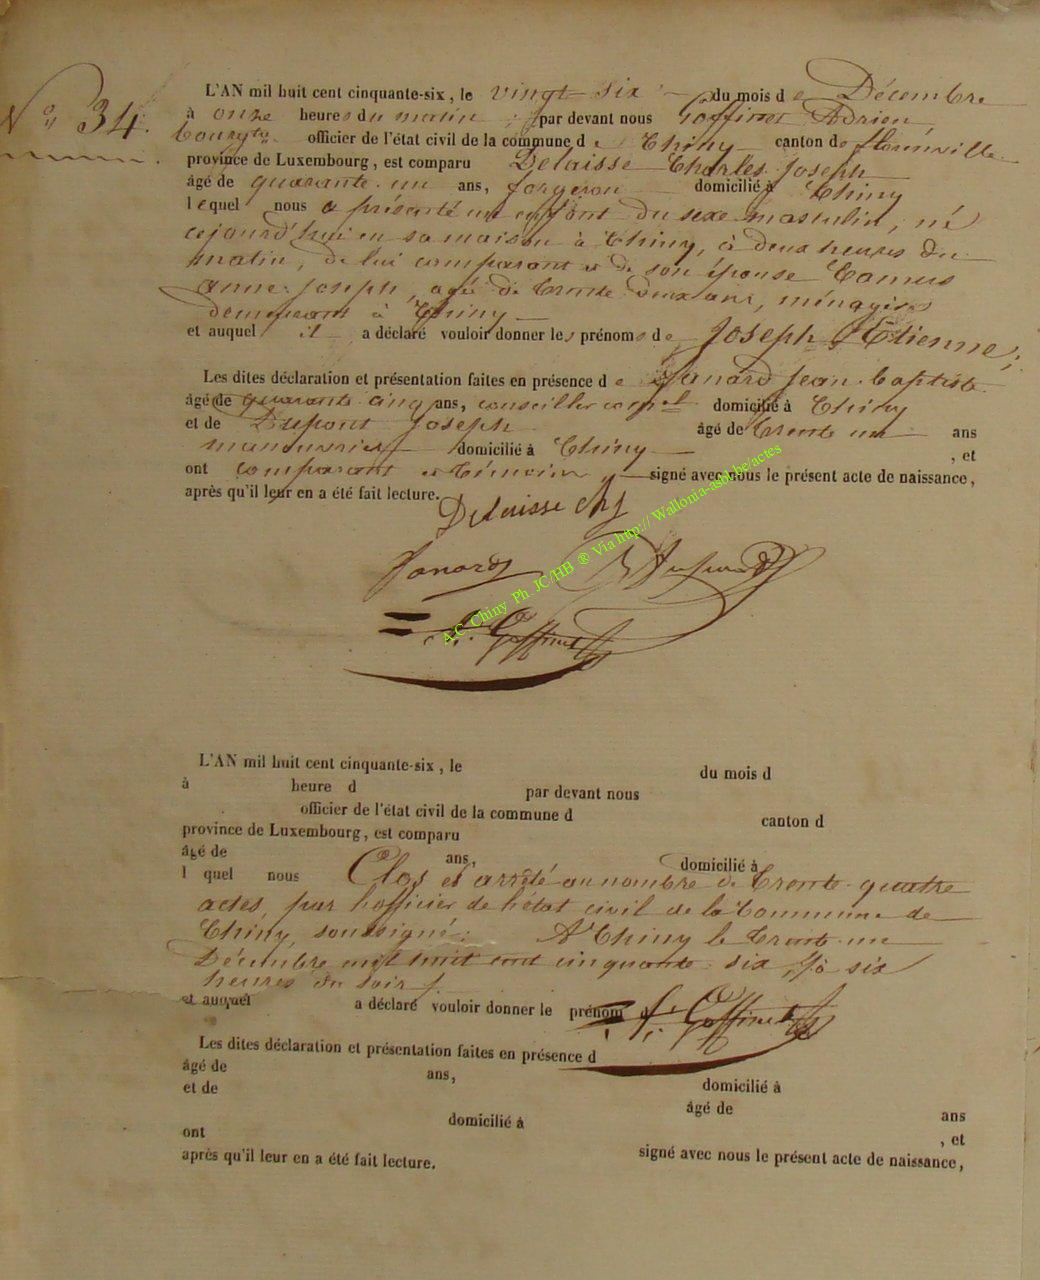 N° 34.
L'AN mil huit cent cinquante-six, le vingt six du mois de Décembre
à onze heures du matin par devant nous Goffinet Adrien,
officier de l'état civil de la commune de Chiny canton de florenville
province de Luxembourg, est comparu Delaisse Charles Joseph
âgé de quarante un ans, forgeron domicilié à Chiny
lequel nous a présenté un enfant du sexe masculin, né
cejourd'hui en sa maison à Chiny, à deux heures du
matin, de lui comparant et de son épouse Camus
anne Joseph, agée de trente deux ans, ménagère
demeurant à Chiny
et auquel il a déclaré vouloir donner les prénoms de Joseph Etienne;
Les dites déclaration et présentation faites en présence de Janard Jean-baptiste
âgé de quarante cinq ans, conseiller com.l domicilié à Chiny
et de Dupont Joseph âgé de trente un ans
manouvrier domicilié à Chiny , et
ont comparant et témoins signé avec nous le présent acte de naissance,
après qu'il leur en a été fait lecture.
Delaisse Chj
Janard
Goffinet
A.C. Chiny Ph. JC/HB ® Via http:// Wallonia-asbl.be/actes
L'AN mil huit cent cinquante-six, le du mois d
à heure d par devant nous
officier de l'état civil de la commune d canton d
province de Luxembourg, est comparu
âgé de ans, domicilié à
l quel nous Clos et arrêté au nombre de trente-quatre
actes, par l'officier de l'état civil de la Commune de
Chiny, soussigné; A Chiny le trente un
Décembre mil huit cent cinquante six, à six
heures du soir.
et auquel a déclaré vouloir donner le prénom d
Goffinet
Les dites déclaration et présentation faites en présence d
âgé de ans, domicilié à
et de âgé de ans
domicilié à , et
ont signé avec nous le présent acte de naissance,
après qu'il leur en a été fait lecture.